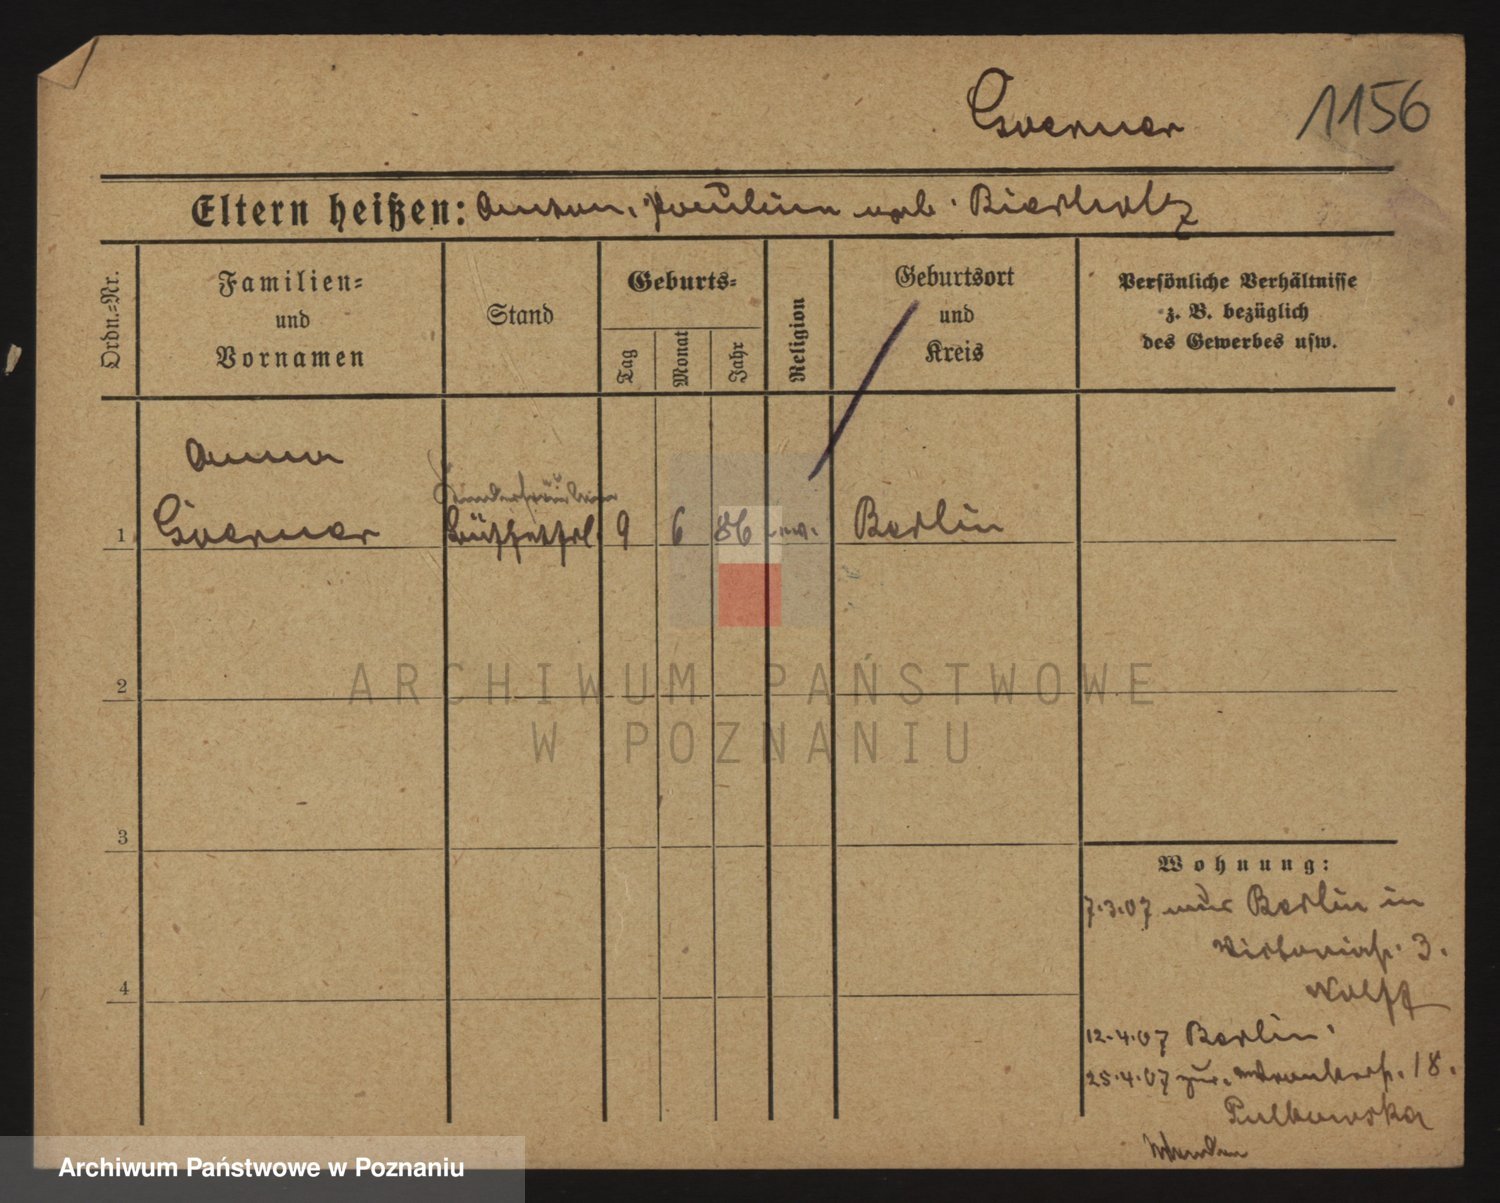 Goerner 1156
Eltern heißen: Anton, Pauline geb. Bierholz
Ordn.-Nr.
Familien-
und
Vornamen
Stand
Geburts-
Tag
Monat
Jahr
Religion
Geburtsort
und
Kreis
Persönliche Verhältnisse
z. B. bezüglich
des Gewerbes usw.
Anna
Kinderfräulein
1 Goerner Büffetfrl. 9 6 86 ev. Berlin
2
3
4
Wohnung:
7.3.07 aus Berlin in
Victoriastr. 3.
Wolff
12.4.07 Berlin.
25.4.07 zur. 18.
ARCHIWUM PAŃSTWOWE
W POZNANIU
Archiwum Państwowe w Poznaniu